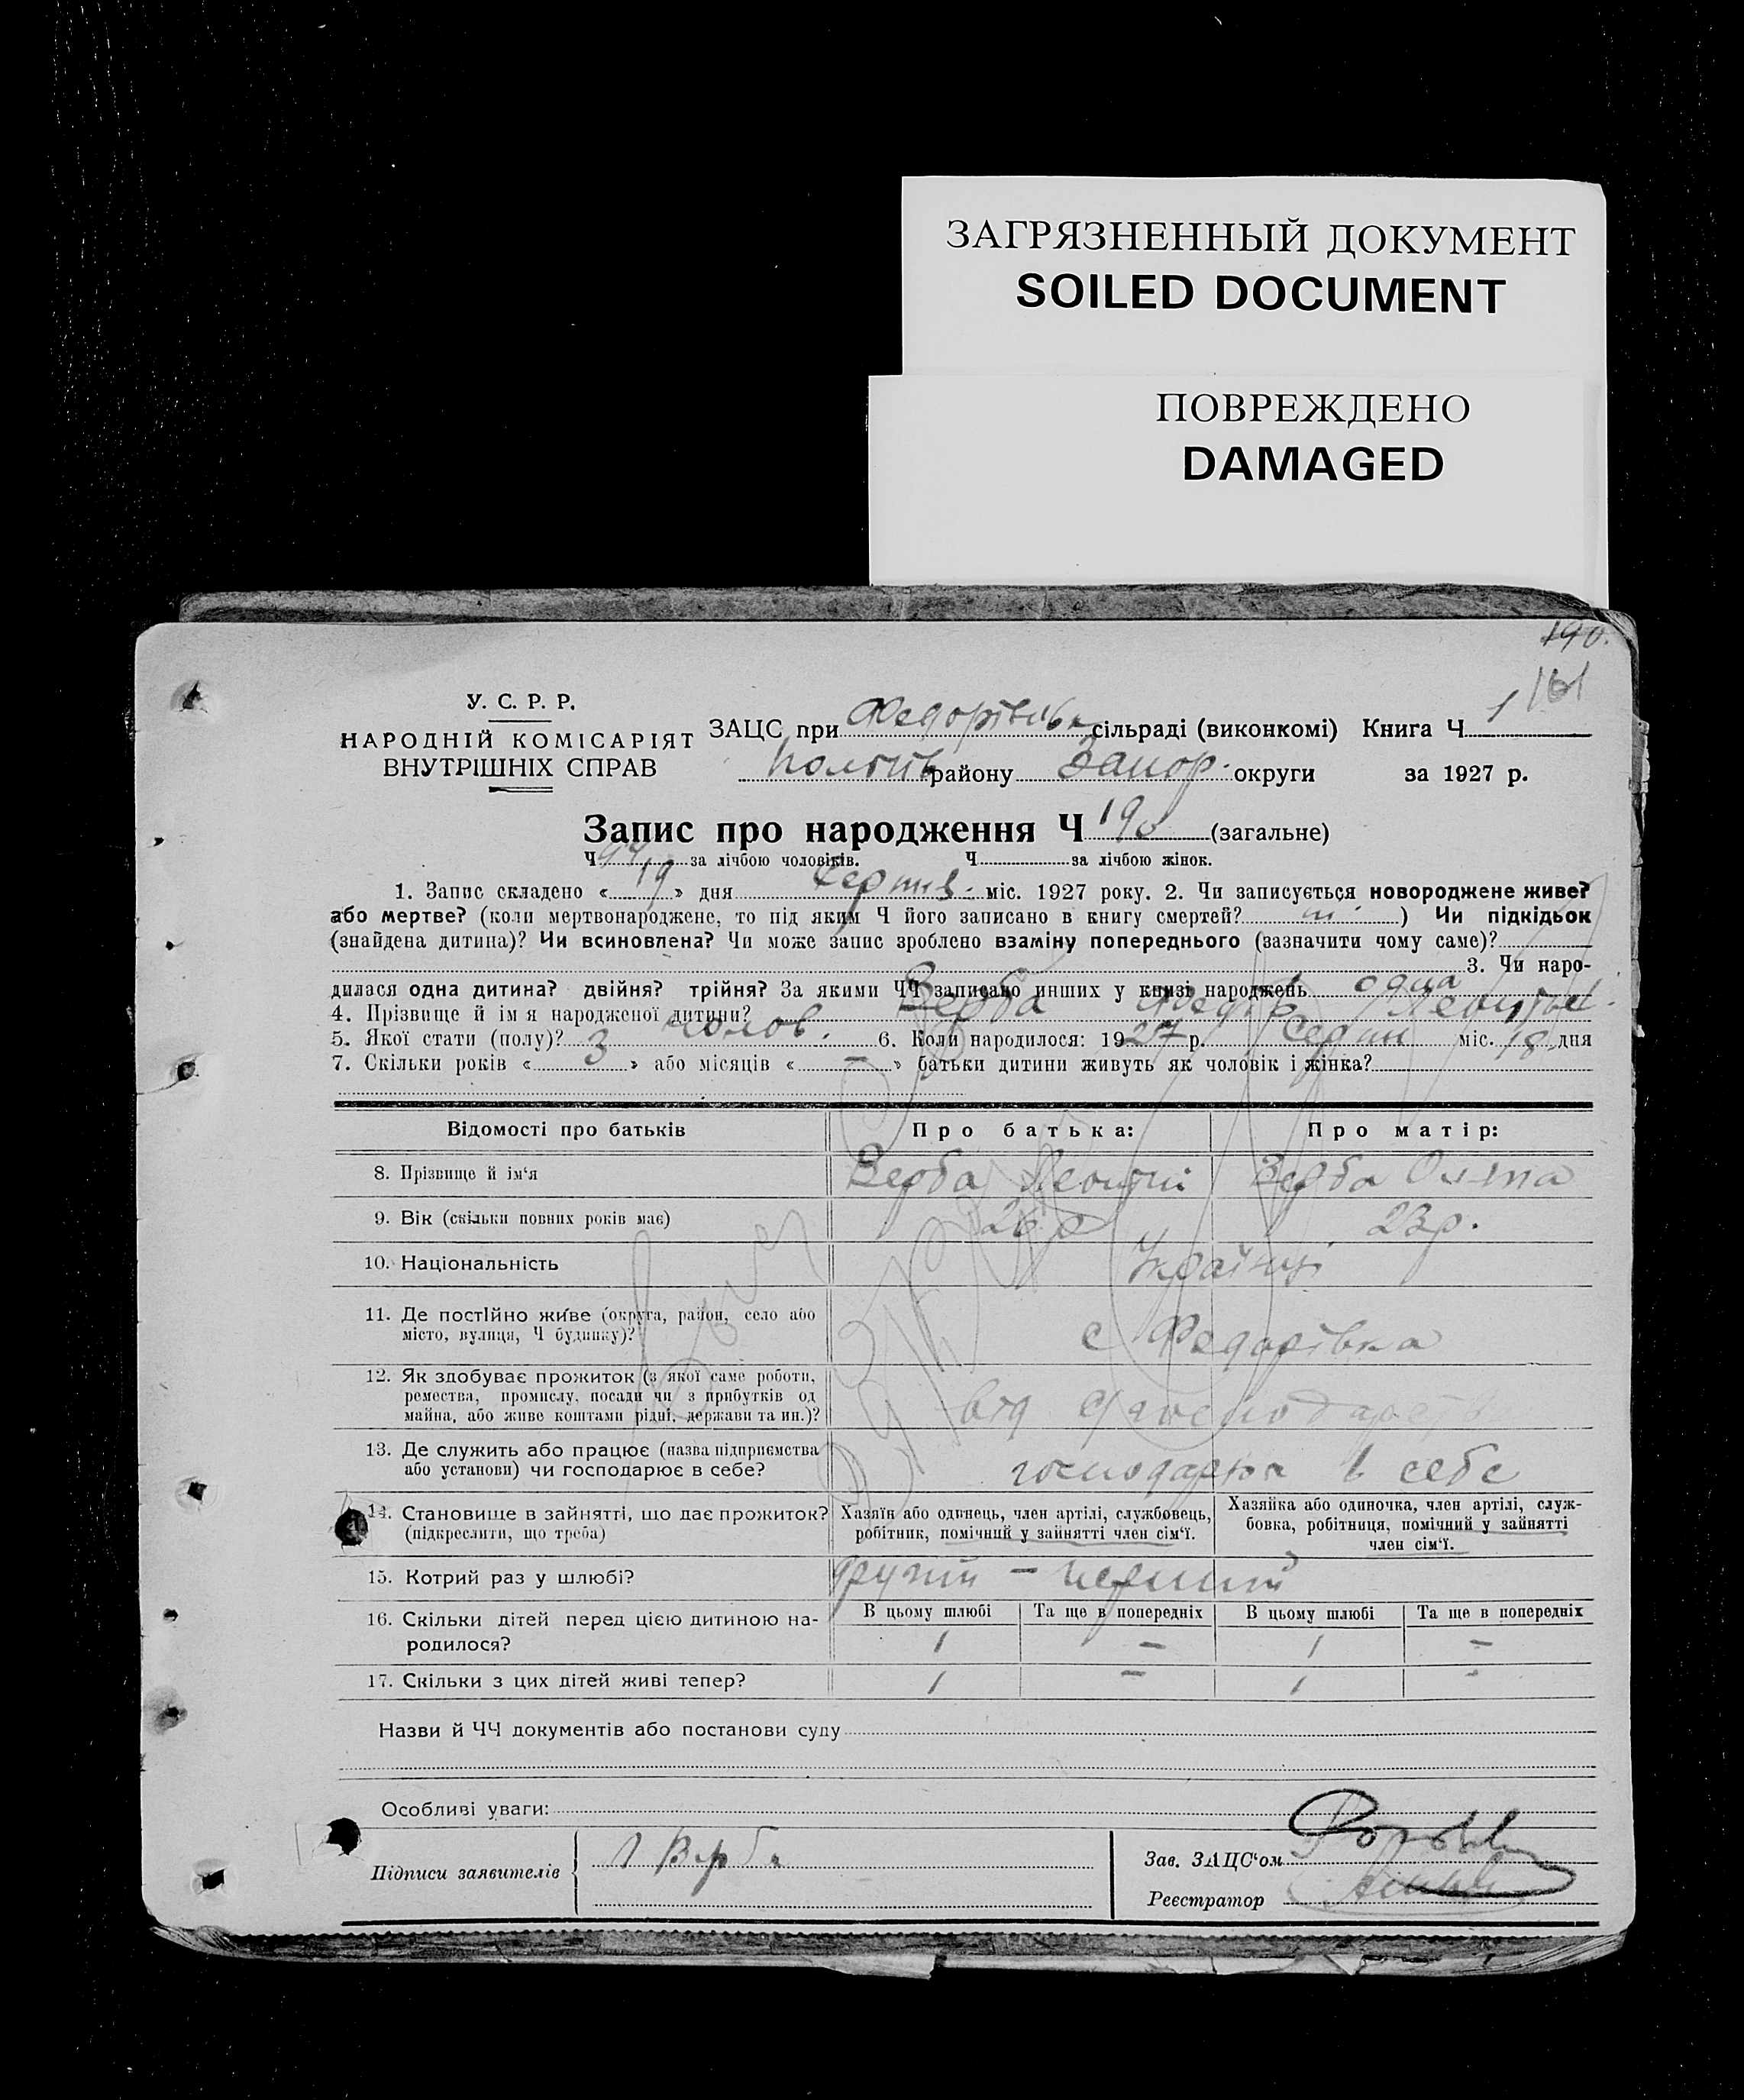 ЗАГРЯЗНЕННЫЙ ДОКУМЕНТ
SOILED DOCUMENT
ПОВРЕЖДЕНО
DAMAGED
190.
161
У. С. Р. Р.
НАРОДНІЙ КОМІСАРІЯТ
ВНУТРІШНІХ СПРАВ
ЗАЦС при Федорівськ сільраді (виконкомі) Книга Ч 1
району Запор. округи за 1927 р.
Запис про народження Ч 190 (загальне)
Ч 94 за лічбою чоловіків. Ч за лічбою жінок.
1. Запис складено « 19 » дня Серпня міс. 1927 року. 2. Чи записується новороджене живе?
або мертве? (коли мертвонароджене, то під яким Ч його записано в книгу смертей? ) Чи підкідьок
(знайдена дитина)? Чи всиновлена? Чи може запис зроблено взаміну попереднього (зазначити чому саме)?
3. Чи наро-
дилася одна дитина? двійня? трійня? За якими ЧЧ записано инших у книзі народжень одна
4. Прізвище й ім я народженої дитини? Верба Федір
5. Якої стати (полу)? чолов. 6. Коли народилося: 1927 р. Серпн міс. 18 дня
7. Скільки років « 3 » або місяців « — » батьки дитини живуть як чоловік і жінка?
Відомості про батьків Про батька: Про матір:
8. Прізвище й ім'я Верба Верба
9. Вік (скільки повних років має) 26 р 23 р.
10. Національність Українці
11. Де постійно живе (округа, район, село або
місто, вулиця, Ч будинку)? с Федорівка
12. Як здобуває прожиток (з якої саме роботи,
ремества, промислу, посади чи з прибутків од
майна, або живе коштами рідні, держави та ин.)? від с/господарств
13. Де служить або працює (назва підприємства
або установи) чи господарює в себе? в себе
14. Становище в зайнятті, що дає прожиток? Хазяїн або одинець, член артілі, службовець, Хазяйка або одиночка, член артілі, служ-
(підкреслити, що треба) робітник, помічний у зайнятті член сім'ї. бовка, робітниця, помічний у зайнятті
член сім'ї.
15. Котрий раз у шлюбі? другий — перший
16. Скільки дітей перед цією дитиною на- В цьому шлюбі Та ще в попередніх В цьому шлюбі Та ще в попередніх
родилося? 1 — 1 —
17. Скільки з цих дітей живі тепер? 1 — 1 -
Назви й ЧЧ документів або постанови суду
Особливі уваги:
Підписи заявителів Л Верба
Зав. ЗАЦС'ом
Реєстратор